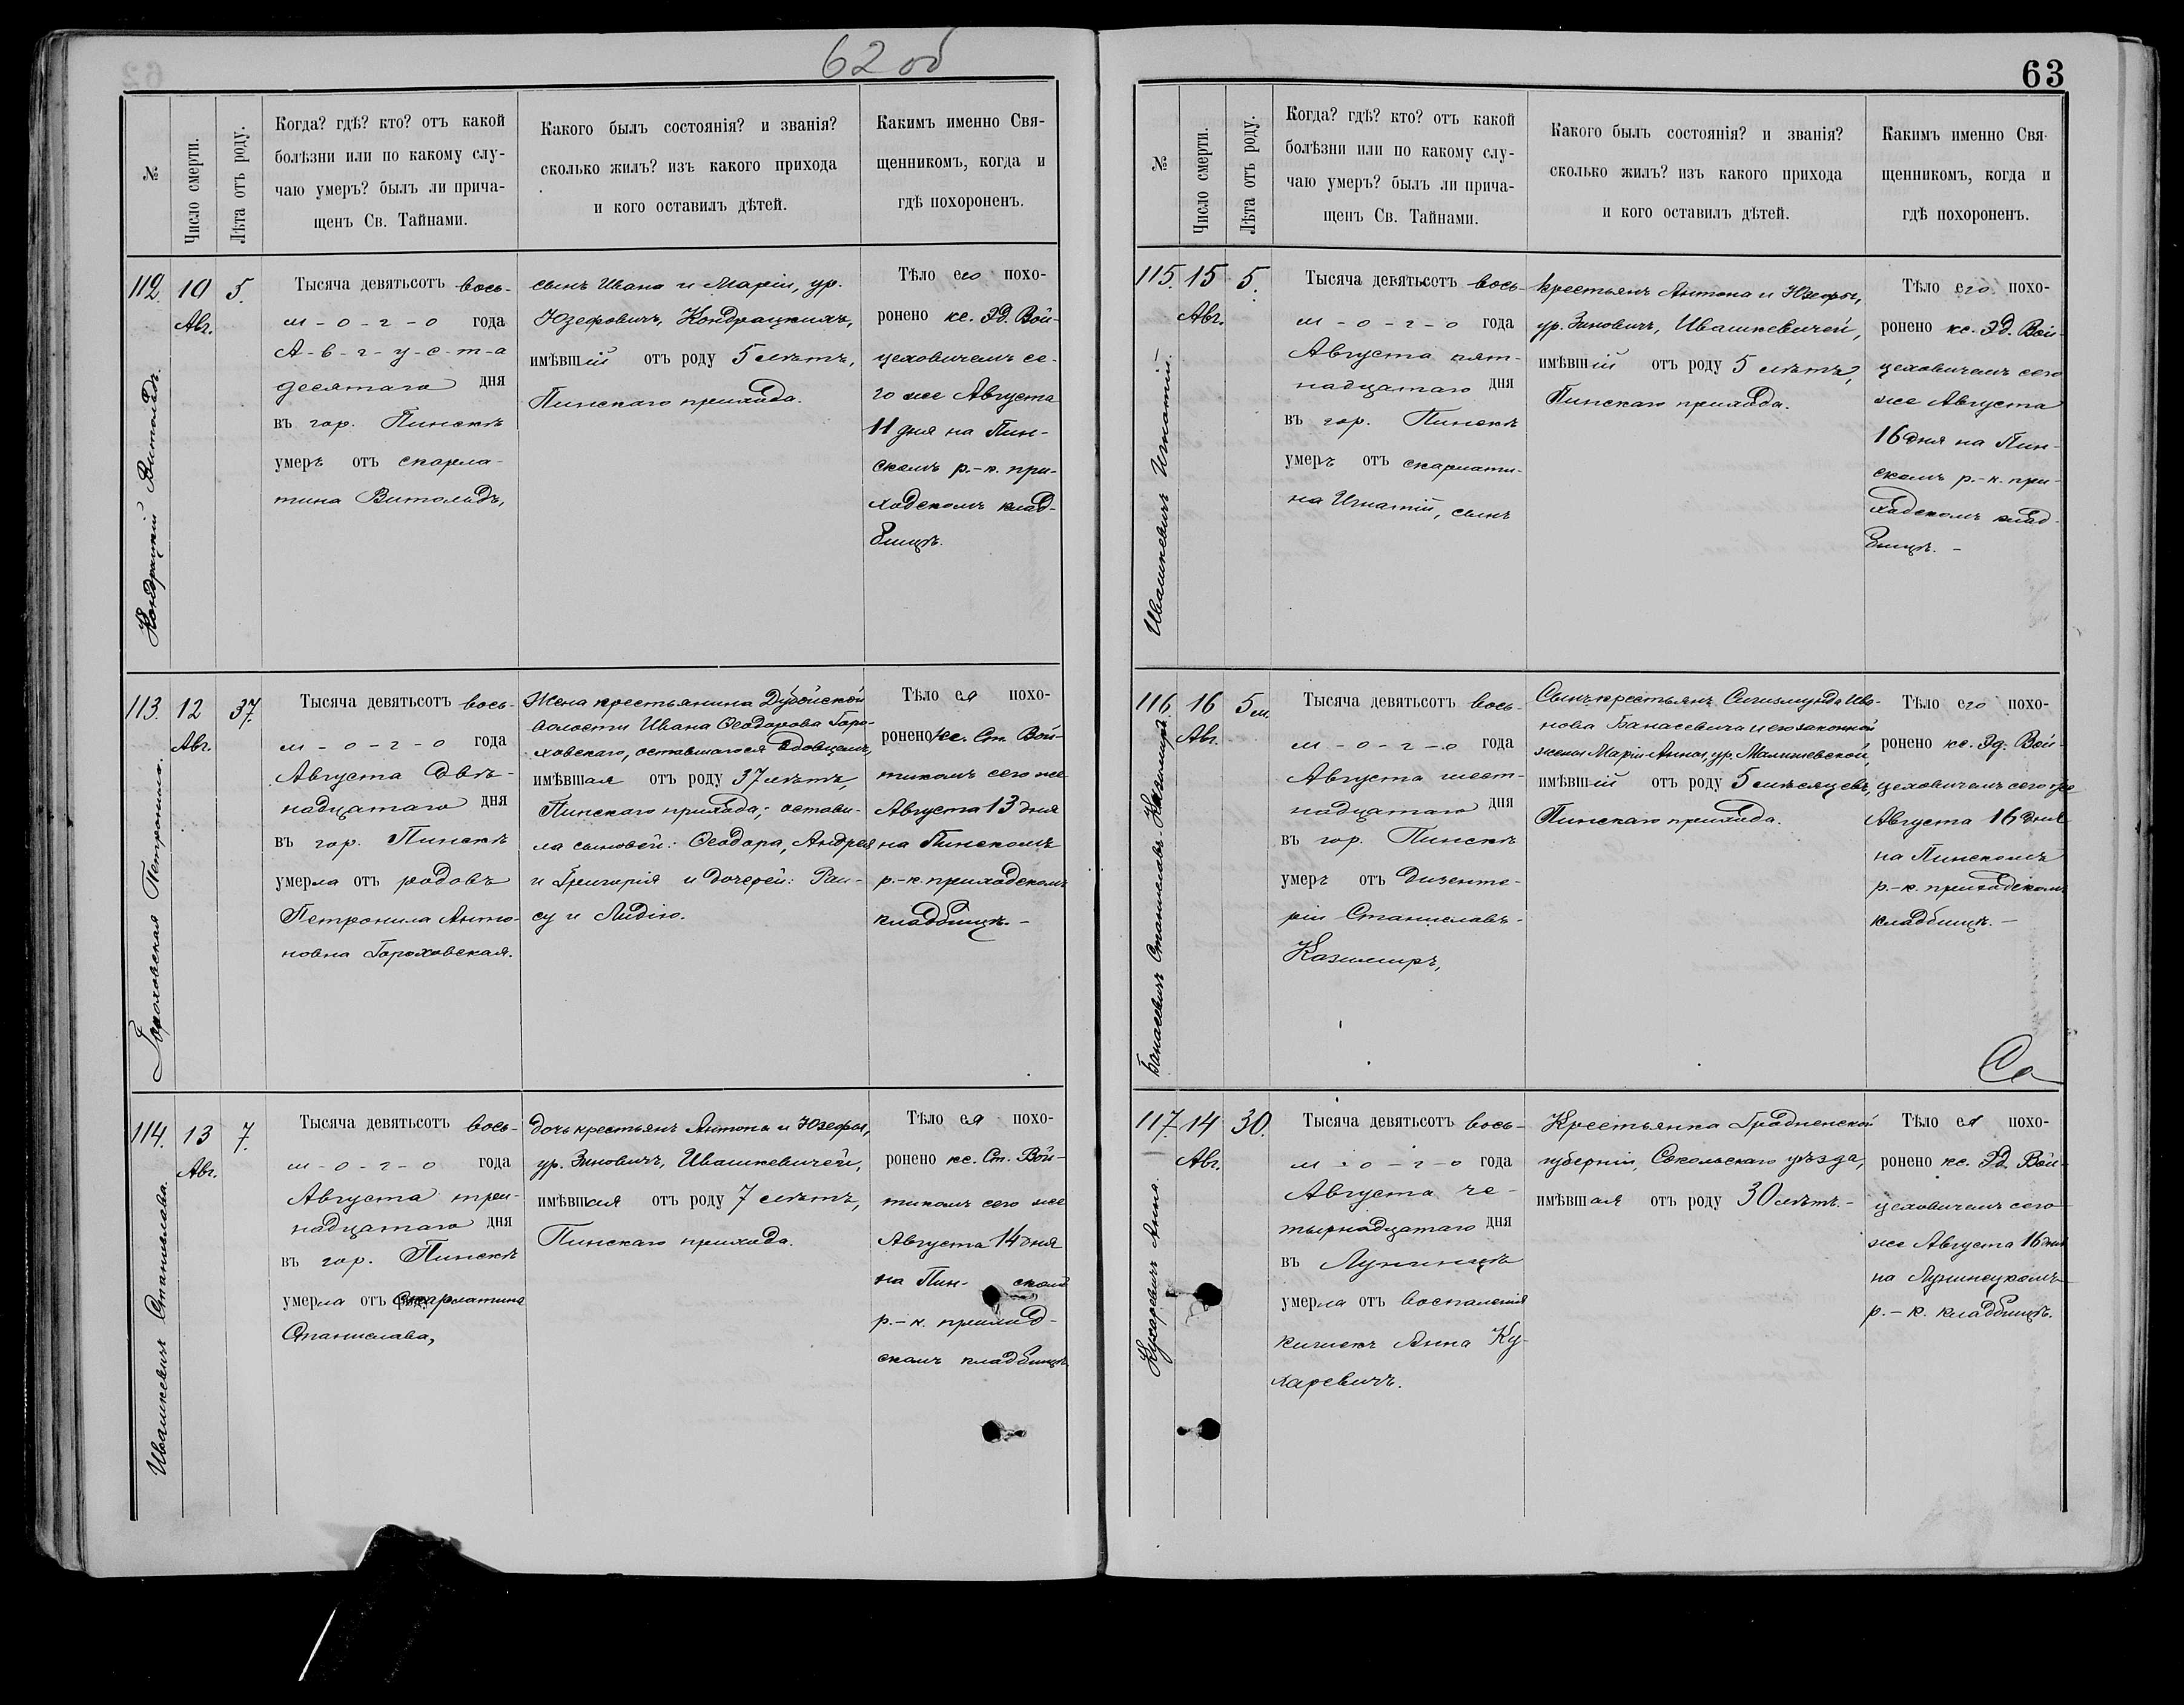 62 об
№
Число смерти.
Лѣта отъ роду.
Когда? гдѣ? кто? отъ какой
болѣзни или по какому слу-
чаю умеръ? былъ ли прича-
щенъ Св. Тайнами.
Какого былъ состоянія? и званія?
сколько жилъ? изъ какого прихода
и кого оставилъ дѣтей.
Какимъ именно Свя-
щенникомъ, когда и
гдѣ похороненъ.
112
10
Авг.
5.
Кондрацкій Витольдъ.
Тысяча девятьсотъ вось-
м-о-г-о года
А-в-г-у-с-т-а
десятаго дня
въ гор. Пинскѣ
умеръ отъ скарла-
тина Витольдъ,
сынъ Ивана и Маріи, ур.
Юзефовичъ, Кондрацкихъ,
имѣвшій отъ роду 5 лѣтъ,
Пинскаго прихода.
Тѣло его похо-
ронено кс. Эд. Вой-
цеховичемъ се-
го же Августа
11 дня на Пин-
скомъ р.-к. при-
ходскомъ клад-
бищѣ.
113.
12
Авг.
37.
Гороховская Петронила.
Тысяча девятьсотъ вось-
м-о-г-о года
Августа двѣ-
надцатаго дня
въ гор. Пинскѣ
умерла отъ родовъ
Петронила Анто-
новна Гороховская.
Жена крестьянина Дубойской
волости Ивана Ѳеодорова Горо-
ховскаго, оставшагося вдовцемъ,
имѣвшая отъ роду 37 лѣтъ,
Пинскаго прихода; остави-
ла сыновей: Ѳеодора, Андрея
и Григорія и дочерей: Раи-
су и Лидію.
Тѣло ея похо-
ронено кс. Ст. Вой-
тикомъ сего же
Августа 13 дня
на Пинскомъ
р.-к. приходскомъ
кладбищѣ.-
114.
13
Авг.
7.
Ивашкевичъ Станислава.
Тысяча девятьсотъ вось-
м-о-г-о года
Августа три-
надцатаго дня
въ гор. Пинскѣ
умерла отъ скарлатина
Станислава,
дочь крестьянъ Антона и Юзефы,
ур. Зиновичъ, Ивашкевичей,
имѣвшая отъ роду 7 лѣтъ,
Пинскаго прихода.
Тѣло ея похо-
ронено кс. Ст. Вой-
тикомъ сего же
Августа 14 дня
на Пин- скомъ
р.-к. приход-
скомъ кладбищѣ
63
№
Число смерти.
Лѣта отъ роду.
Когда? гдѣ? кто? отъ какой
болѣзни или по какому слу-
чаю умеръ? былъ ли прича-
щенъ Св. Тайнами.
Какого былъ состоянія? и званія?
сколько жилъ? изъ какого прихода
и кого оставилъ дѣтей.
Какимъ именно Свя-
щенникомъ, когда и
гдѣ похороненъ.
115.
15
Авг.
5.
Ивашкевичъ Игнатій.-
Тысяча девятьсотъ вось-
м-о-г-о года
Августа пят-
надцатаго дня
въ гор. Пинскѣ
умеръ отъ скарлати-
на Игнатій, сынъ
крестьянъ Антона и Юзефы,
ур. Зиновичъ, Ивашкевичей,
имѣвшій отъ роду 5 лѣтъ,
Пинскаго прихода.
Тѣло его похо-
ронено кс. Эд. Вой-
цеховичемъ сего
же Августа
16 дня на Пин-
скомъ р.-к. при-
ходскомъ клад-
бищѣ.-
116
16
Авг.
5 м.
Банасевичъ Станиславъ-Казимиръ
Тысяча девятьсотъ вось-
м-о-г-о года
Августа шест-
надцатаго дня
въ гор. Пинскѣ
умеръ отъ дизенте-
ріи Станиславъ-
Казимиръ,
Сынъ крестьянъ Сигизмунда Ива-
нова Банасевича и его законной
жены Маріи-Анны, ур. Малишевской,
имѣвшій отъ роду 5 мѣсяцевъ,
Пинскаго прихода.
Тѣло его похо-
ронено кс. Эд. Вой-
цеховичемъ сего же
Августа 16 дня
на Пинскомъ
р.-к. приходскомъ
кладбищѣ.-
117.
14
Авг.
30.
Кухаревичъ Анна.
Тысяча девятьсотъ вось-
м-о-г-о года
Августа че-
тырнадцатаго дня
въ Лунинцѣ
умерла отъ воспаленія
кишекъ Анна Ку-
харевичъ.
Крестьянка Гродненской
губерніи, Сокольскаго уѣзда,
имѣвшая отъ роду 30 лѣтъ.-
Тѣло ея похо-
ронено кс. Эд. Вой-
цеховичемъ сего
же Августа 16 дня
на Лунинецкомъ
р.-к. кладбищѣ.